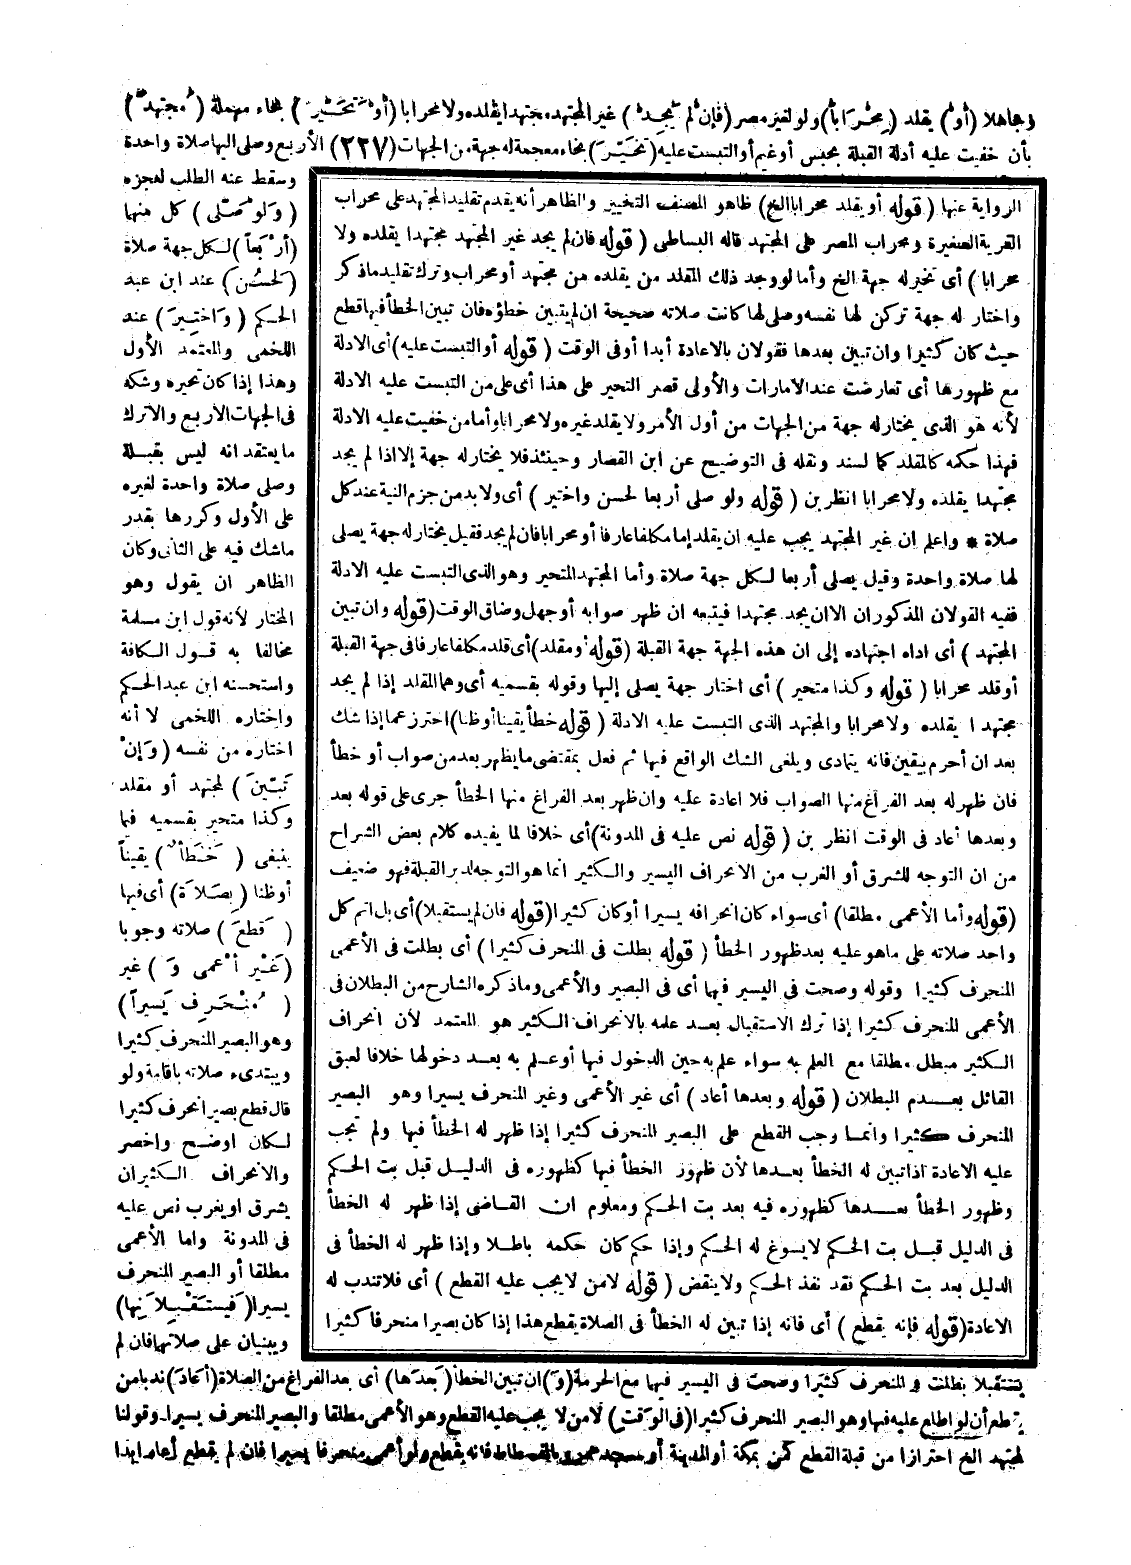 وجاهلا (أو) يقلد (مِحْرَاباً) ولو لغير مصر (فإن لم يَجِد) غير المجتهد مجتهدا يقلده ولا محرابا (أو تَحَيَّر) بحاء مهملة (مجتهد)
بأن خفيت عليه أدلة القبلة بحبس أو غيم أو التبست عليه (تَخَيَّرَ) بخاء معجمة له جهة من الجهات (٢٢٧) الأربع وصلى اليها صلاة واحدة
وسقط عنه الطلب لعجزه
(وَلو صَلّى) كل منها
(أرْبَعاً) لكل جهة صلاة
(لَحَسُنَ) عند ابن عبد
الحكم (وَاختِيرَ) عند
اللخمى والمعتمد الأول
وهذا إذا كان تحيره وشكه
فى الجهات الأربع والا ترك
ما يعتقد انه ليس بقبلة
وصلى صلاة واحدة لغيره
على الأول وكررها بقدر
ما شك فيه على الثانى وكان
الظاهر ان يقول وهو
المختار لأنه قول ابن مسلمة
مخالفا به قول الكافة
واستحسنه ابن عبد الحكم
واختاره اللخمى لا أنه
اختاره من نفسه (وَإنْ
تَبَيّنَ) لمجتهد أو مقلد
وكذا متحير بقسميه فيما
ينبغى (خَطَأ) يقيناً
أو ظنا (بِصَلاَة) أى فيها
(قَطعَ) صلاته وجوبا
(غَيْر أعْمى وَ) غير
(مُنْحَرِف يَسيراً)
وهو البصير المنحرف كثيرا
ويبتدىء صلاته باقامة ولو
قال قطع بصير انحرف كثيرا
لكان اوضح واخصر
والانحراف الكثير ان
يشرق او يغرب نص عليه
فى المدونة واما الأعمى
مطلقا أو البصير المنحرف
يسيرا (فَيستَقْبِلاَنِها)
ويبنيان على صلاتهما فان لم
الرواية عنها (قوله أو يقلد محرابا الخ) ظاهر المصنف التخيير والظاهر أنه يقدم تقليد المجتهد على محراب
القرية الصغيرة ومحراب المصر على المجتهد قاله البساطى (قوله فان لم يجد غير المجتهد مجتهدا يقلده ولا
محرابا) أى تخير له جهة الخ وأما لو وجد ذلك المقلد من يقلده من مجتهد أو محراب وترك تقليد ما ذكر
واختار له جهة تركن لها نفسه وصلى لها كانت صلاته صحيحة ان لم يتبين خطؤه فان تبين الخطأ فيها قطع
حيث كان كثيرا وان تبين بعدها فقولان بالاعادة أبدا أو فى الوقت (قوله أو التبست عليه) أى الادلة
مع ظهورها أى تعارضت عنده الامارات والأولى قصر التحير على هذا أى على من التبست عليه الادلة
لأنه هو الذى يختار له جهة من الجهات من أول الأمر ولا يقلد غيره ولا محرابا وأما من خفيت عليه الادلة
فهذا حكمه كالمقلد كما لسند ونقله فى التوضيح عن ابن القصار وحينئذ فلا يختار له جهة إلا اذا لم يجد
مجتهدا يقلده ولا محرابا انظر بن (قوله ولو صلى أربعا لحسن واختير) أى ولا بد من جزم النية عند كل
صلاة * واعلم ان غير المجتهد يجب عليه ان يقلد إما مكلفا عارفا أو محرابا فان لم يجد فقيل يختار له جهة يصلى
لها صلاة واحدة وقيل يصلى أربعا لكل جهة صلاة وأما المجتهد المتحير وهو الذى التبست عليه الادلة
ففيه القولان المذكوران الا ان يجد مجتهدا فيتبعه ان ظهر صوابه أو جهل وضاق الوقت (قوله وان تبين
المجتهد) أى اداه اجتهاده إلى ان هذه الجهة جهة القبلة (قوله ومقلد) أى قلد مكلفا عارفا فى جهة القبلة
أو قلد محرابا (قوله وكذا متحير) أى اختار جهة يصلى إليها وقوله بقسميه أى وهما المقلد إذا لم يجد
مجتهدا يقلده ولا محرابا والمجتهد الذى التبست عليه الادلة (قوله خطأ يقينا أو ظنا) احترز عما إذا شك
بعد ان أحرم بيقين فانه يتمادى ويلغى الشك الواقع فيها ثم فعل بمقتضى ما يظهر بعد من صواب أو خطأ
فان ظهر له بعد الفراغ منها الصواب فلا اعادة عليه وان ظهر بعد الفراغ منها الخطأ جرى على قوله بعد
وبعدها أعاد فى الوقت انظر بن (قوله نص عليه فى المدونة) أى خلافا لما يفيده كلام بعض الشراح
من ان التوجه للشرق أو الغرب من الانحراف اليسير والكثير انما هو التوجه لدبر القبلة فهو ضعيف
(قوله وأما الأعمى مطلقا) أى سواء كان انحرافه يسيرا أو كان كثيرا (قوله فان لم يستقبلا) أى بل اتم كل
واحد صلاته على ما هو عليه بعد ظهور الخطأ (قوله بطلت فى المنحرف كثيرا) أى بطلت فى الأعمى
المنحرف كثيرا وقوله وصحت فى اليسير فيهما أى فى البصير والأعمى وما ذكره الشارح من البطلان فى
الأعمى المنحرف كثيرا إذا ترك الاستقبال بعد علمه بالانحراف الكثير هو المعتمد لأن انحراف
الكثير مبطل مطلقا مع العلم به سواء علم به حين الدخول فيها أو علم به بعد دخولها خلافا لعبق
القائل بعدم البطلان (قوله وبعدها أعاد) أى غير الأعمى وغير المنحرف يسيرا وهو البصير
المنحرف كثيرا وانما وجب القطع على البصير المنحرف كثيرا إذا ظهر له الخطأ فيها ولم تجب
عليه الاعادة اذا تبين له الخطأ بعدها لأن ظهور الخطأ فيها كظهوره فى الدليل قبل بت الحكم
وظهور الخطأ بعدها كظهوره فيه بعد بت الحكم ومعلوم ان القاضى إذا ظهر له الخطأ
فى الدليل قبل بت الحكم لا يسوغ له الحكم وإذا حكم كان حكمه باطلا وإذا ظهر له الخطأ فى
الدليل بعد بت الحكم فقد نفذ الحكم ولا ينقض (قوله لا من لا يجب عليه القطع) أى فلا تندب له
الاعادة (قوله فإنه يقطع) أى فانه إذا تبين له الخطأ فى الصلاة يقطع هذا إذا كان بصيرا منحرفا كثيرا
يستقبلا بطلت فى المنحرف كثيرا وصحت فى اليسير فيهما مع الحرمة (وَ) ان تبين الخطأ (بَعدَها) أى بعد الفراغ من الصلاة (أعادَ) ندبا من
يقطع أن لو اطلع عليه فيها وهو البصير المنحرف كثيرا (فى الوَقت) لا من لا يجب عليه القطع وهو الأعمى مطلقا والبصير المنحرف يسيرا وقولنا
لمجتهد الخ احترازا من قبلة القطع كمن بمكة أو المدينة أو مسجد عمرو بالفسطاط فانه يقطع ولو أعمى منحرفا يسيرا فان لم يقطع أعاد ابدا